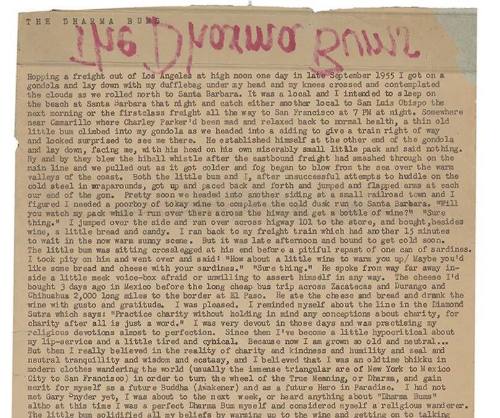 THE DHARMA BUMS
The Dharma Bums
Hopping a freight out of Los Angeles at high noon one day in late September 1955 I got on a
gondola and lay down with my dufflebag under my head and my knees crossed and contemplated
the clouds as we rolled north to Santa Barbara. It was a local and I intended to sleep on
the beach at Santa Barbara that night and catch either another local to San Luis Obispo the
next morning or the firstclass freight all the way to San Francisco at 7 PM at night. Somewhere
near Camarillo where Charley Parker'd been mad and relaxed back to normal health, a thin old
little bum climbed into my gondola as we headed into a siding to give a train right of way
and looked surprised to see there. He established himself at the other end of the gondola
and lay down, facing me, with his head on his own miserably small little pack and said nothing.
By and by they blew the hiball whistle after the eastbound freight had smashed through on the
main line and we pulled out as it got colder and fog began to blow from the sea over the warm
valleys of the coast. Both the little bum and I, after unsuccessful attempts to huddle on the
cold steel in wraparounds, got up and paced back and forth and jumped and flapped arms at each
our end of the gon. Pretty soon we headed into another siding at a small railroad town and I
figured I needed a poorboy of tokay wine to complete the cold dusk run to Santa Barbara. "Will
you watch my pack while I run over there across the hiway and get a bottle of wine?" "Sure
thing." I jumped over the side and ran across highway 101 to the store, and bought,besides
wine, a little bread and candy. I ran back to my freight train which had another 15 minutes
to wait in the now warm sunny scene. But it was late afternoon and bound to get cold soon.
The little bum was sitting crosslegged at his end before a pitiful repast of one can of sardines.
I took pity on him and went over and said: "How about a little wine to warm you up/ Maybe you'd
like some bread and cheese with your sardines." "Sure thing." He spoke from way far away in-
side a little meek voice-box afraid or unwilling to assert himself in any way. The cheese I'd
bought 3 days ago in Mexico before the long cheap bus trip across Zacatecas and Durango and
Chihuahua 2,000 long miles to the border at El Paso. He ate the cheese and bread and drank the
wine with gusto and gratitude. I was pleased. I reminded myself about the line in the Diamond
Sutra which says: "Practice charity without holding in mind any conceptions about charity, for
charity after all is just a word." I was very devout in those days and was practising my
religious devotions almost to perfection. Since then I've become a little hypocritical about
my lip-service and a little tired and cybical. Because now I am grown so old and neutral...
But then I really believed in the reality of charity and kindness and humility and zeal and
neutral tranquility and wisdom and ecstasy, and I believed that I was an oldtime bhikku in
modern clothes wandering the world (usually the immense triangular arc of New York to Mexico
City to San Francisco) in order to turn the wheel of the True Meaning, or Dharma, and gain
merit for myself as a future Buddha (Awakener) and as a future Hero in Paradise. I had not
met Gary Snyder yet, I was about to the next week, or heard anything about "Dharma Bums"
altho at this time I was a perfect Dharma Bum myself and considered myself a religious wanderer.
The little bum solidified all my beliefs by warming up to the wine and